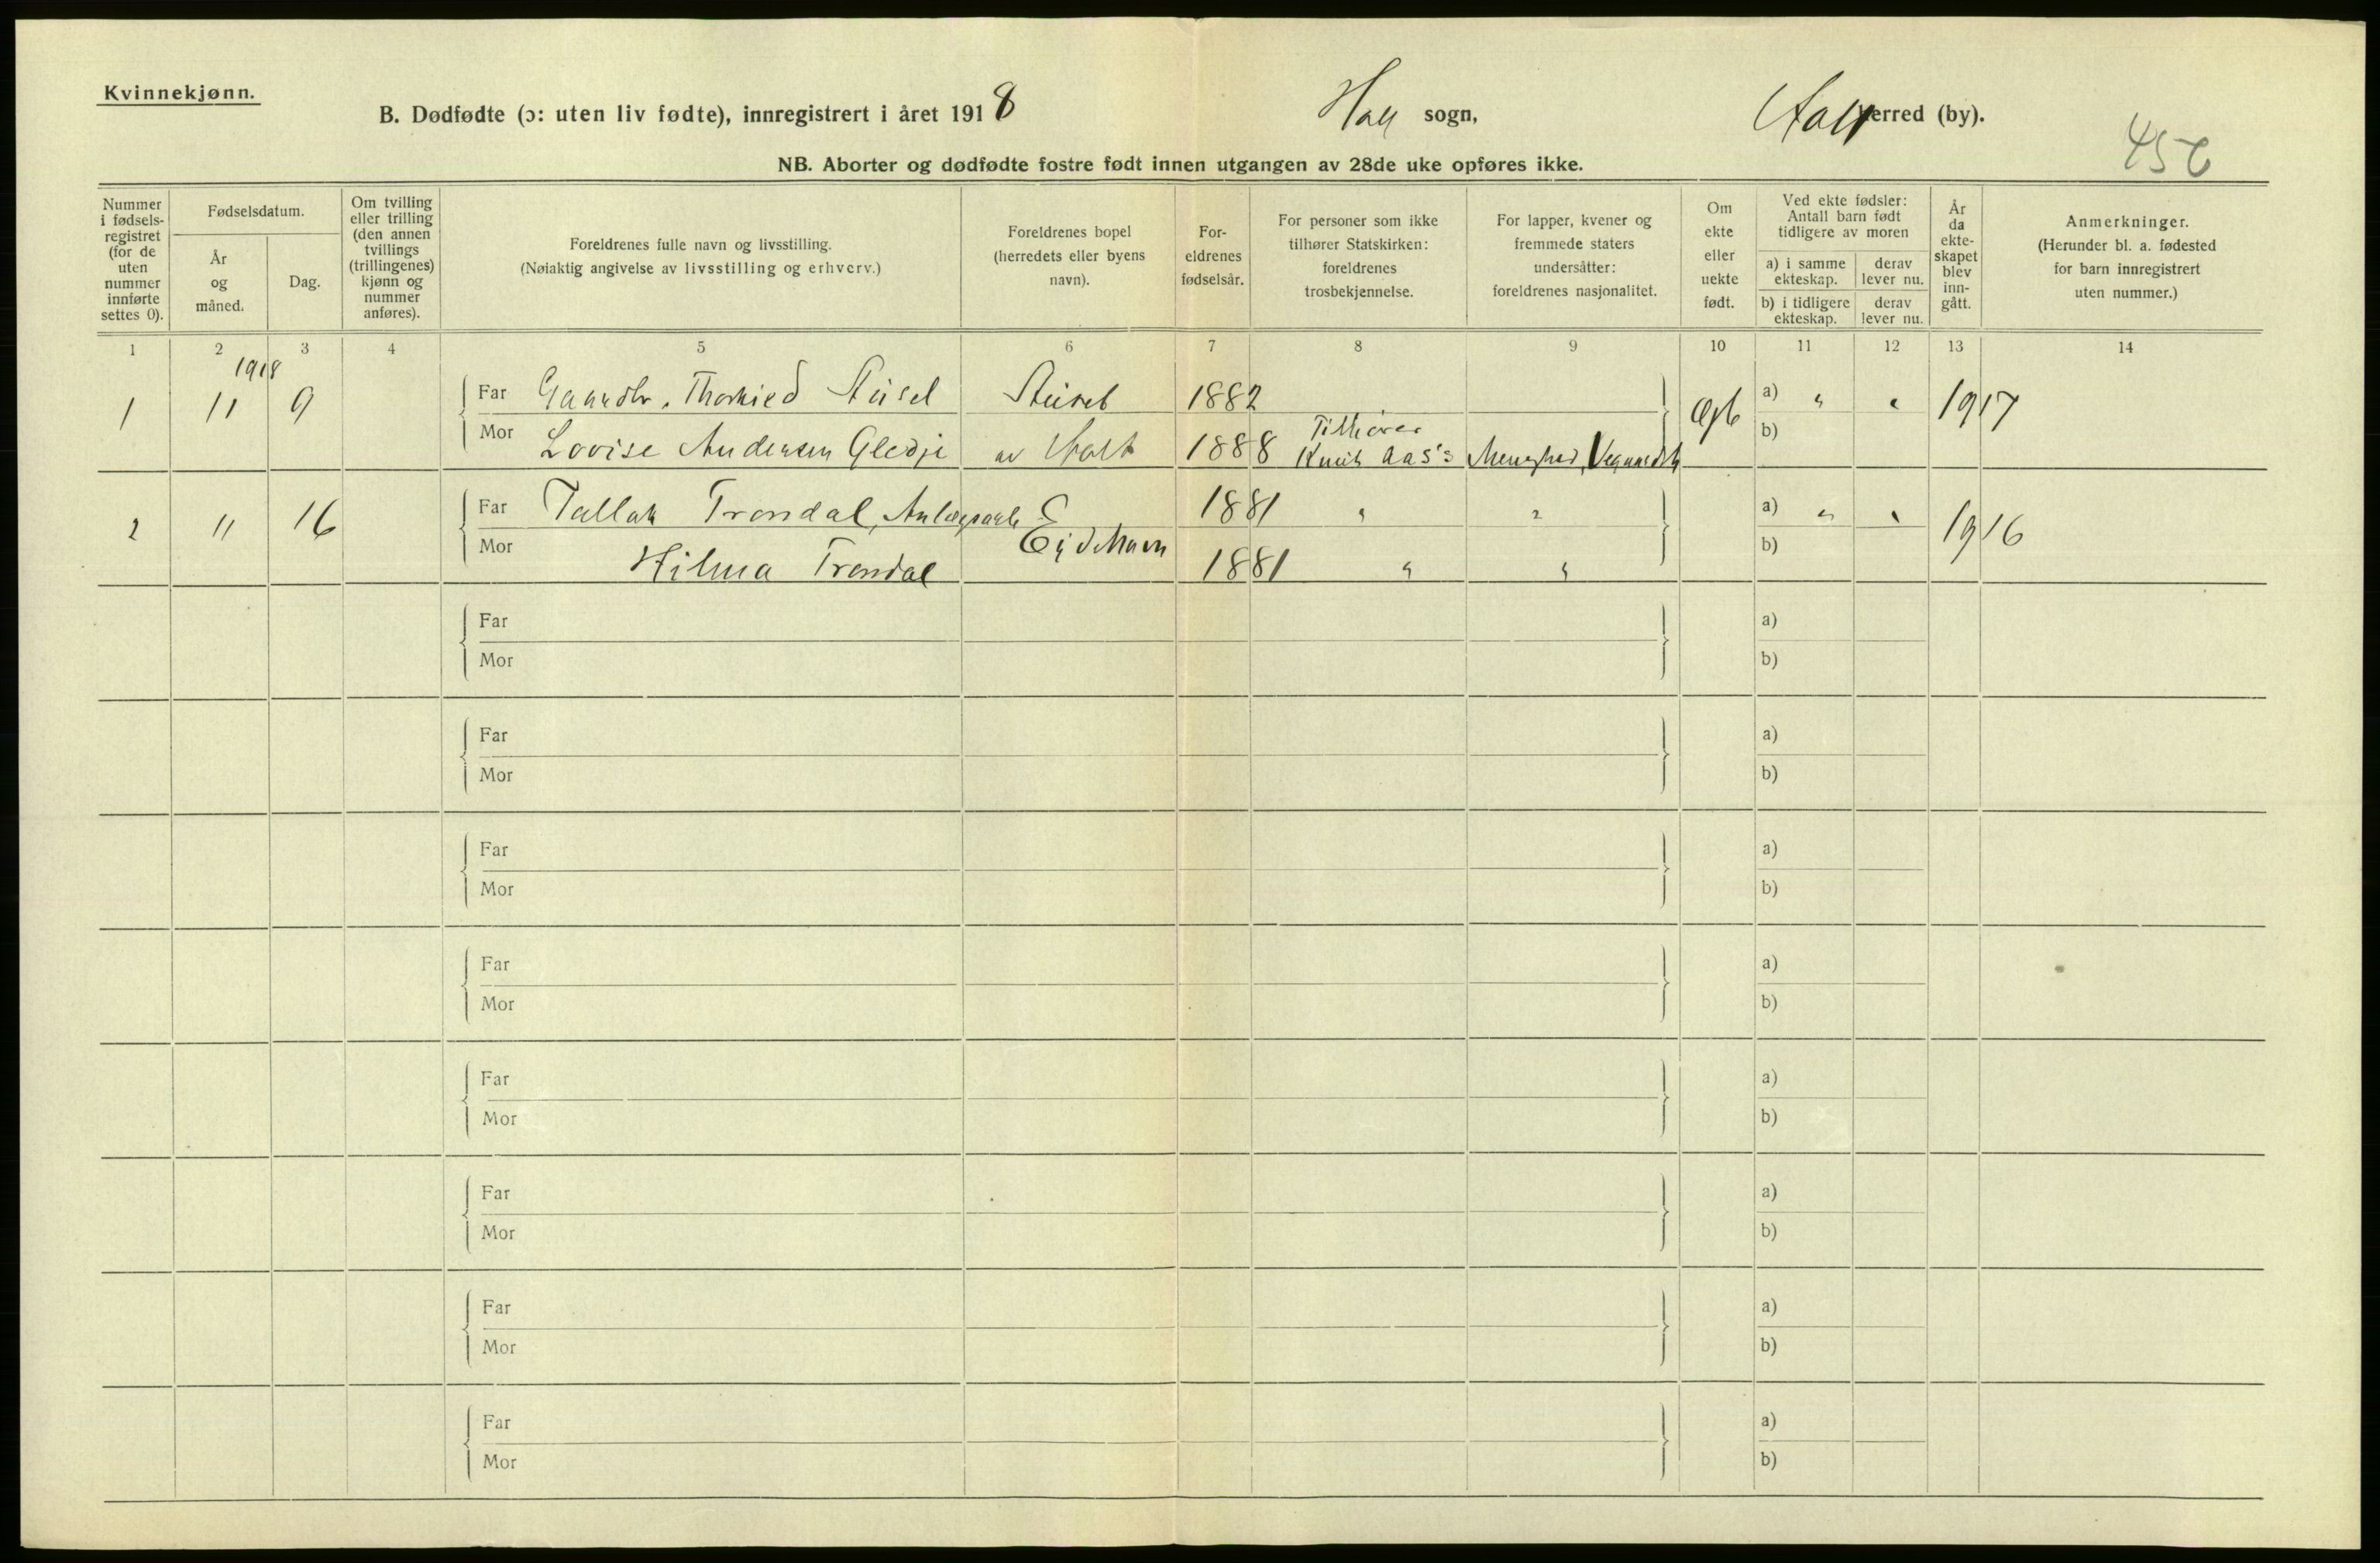 Kvinnekjønn.
B. Dødfødte (ɔ: uten liv fødte), innregistrert i året 1918 sogn, herred (by).
456
NB. Aborter og dødfødte fostre født innen utgangen av 28de uke opføres ikke.
Nummer i fødsels- registret (for de uten nummer innførte settes 0).
Fødselsdatum.
År og måned.
Dag.
Om tvilling eller trilling (den annen tvillings (trillingenes) kjønn og nummer anføres).
Foreldrenes fulle navn og livsstilling.
(Nøiaktig angivelse av livsstilling og erhverv.)
Foreldrenes bopel (herredets eller byens navn).
For- eldrenes fødselsår.
For personer som ikke tilhører Statskirken: foreldrenes trosbekjennelse.
For lapper, kvener og fremmede staters undersåtter: foreldrenes nasjonalitet.
Om ekte eller uekte født.
Ved ekte fødsler: Antall barn født tidligere av moren
a) i samme ekteskap.
derav lever nu.
b) i tidligere ekteskap.
derav lever nu.
År da ekte- skapet blev inn- gått.
Anmerkninger.
(Herunder bl. a. fødested for barn innregistrert uten nummer.)
1 2 3 4 5 6 7 8 9 10 11 12 13 14
1918
1 11 9 Far Gaardbr. 1882 a) " " 1917
Mor Lovise Andersen av Holt 1888 Tilhører Knut Aas's b)
2 " 16 Far Tallak Trondal, 1881 " " a) " " 1916
Mor Hilma Trondal Eydehavn 1881 " " b)
Far a)
Mor b)
Far a)
Mor b)
Far a)
Mor b)
Far a)
Mor b)
Far a)
Mor b)
Far a)
Mor b)
Far a)
Mor b)
Far a)
Mor b)